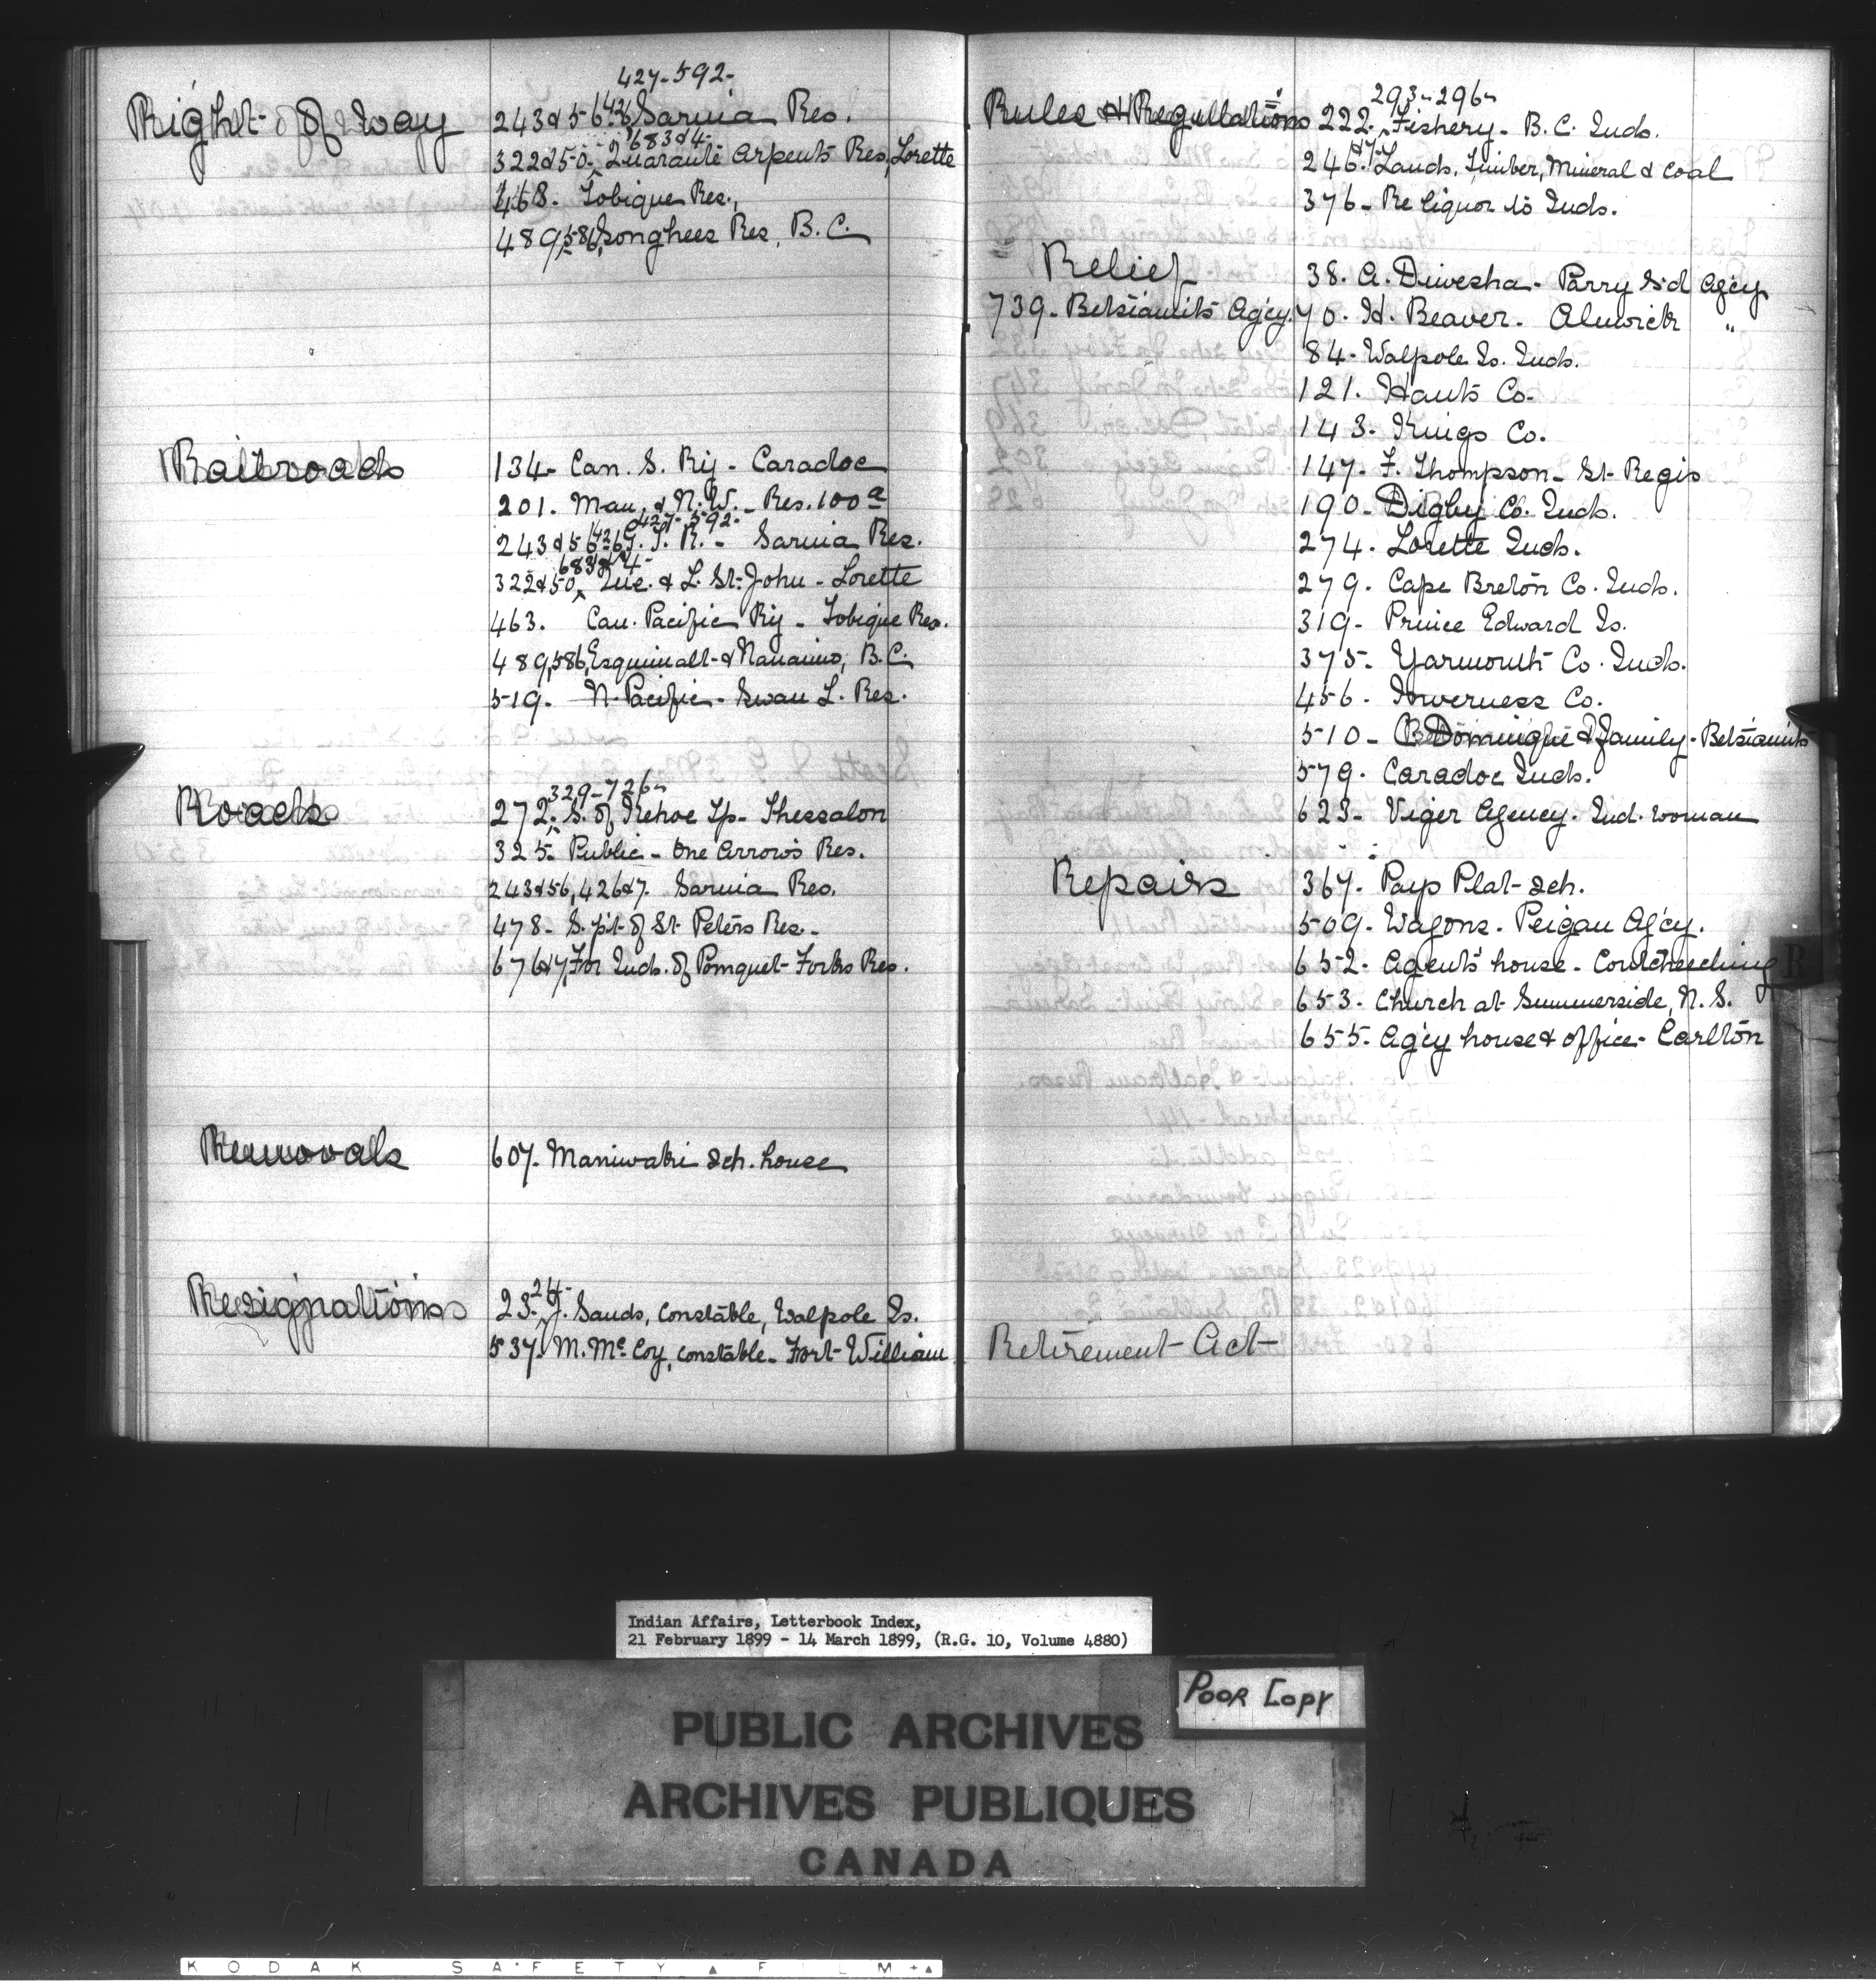 427-592-
Right of way 243&56, 426 Sarnia Res.
683&4-
322&50- Quarante Arpents Res, Lorette
468- Tobique Res.,
489,586, Songhees Res, B.C.
Railroads 134- Can. S. Ry - Caradoc
201. Man. & N.W. - Res. 100a
427-592-
243&56, 426, G.T.R. - Sarnia Res.
683&4-
322&50, Que. & L. St. John - Lorette
463. Can. Pacific Ry - Tobique Res.
489,586, Esquimalt & Nanaimo, B.C.
519. N. Pacific - Swan L. Res.
329-726-
Roads 272. S. of Kehoe Tp - Thessalon
325- Public - One Arrow's Res.
243&56, 426&7. Sarnia Res.
478- S. pt. of St. Peters Res.
676&7, For Inds. of Pomquet Forks Res.
Removals 607. Maniwaki Sch. house
24-
Resignations 23- J. Sands, Constable, Walpole Is.
537. M. McCoy, constable - Fort William
293-296-
Rules & Regulations 222. Fishery - B.C. Inds.
246&7. Lands, Timber, Mineral & Coal
376- Re liquor to Inds.
Relief 38. A. Diwesha - Parry S'd Ag'cy
739- Betsiamits Ag'cy. 70. H. Beaver. Alnwick "
84- Walpole Is. Inds.
121. Hants Co.
143. Kings Co.
147- F. Thompson - St. Regis
190- Digby Co. Inds.
274. Lorette Inds.
279. Cape Breton Co. Inds.
319- Prince Edward Is.
375- Yarmouth Co. Inds.
456. Inverness Co.
510- B. Dominique & family - Betsiamits
579. Caradoc Inds.
623- Viger Agency. Ind. woman
Repairs 367. Pays Plat Sch.
509. Wagons. Peigan Ag'cy.
652- Agent's house - Coutcheeching
653. Church at Summerside, N.S.
655. Ag'cy house & office - Carlton
Retirement Act
R
Indian Affairs, Letterbook Index,
21 February 1899 - 14 March 1899, (R.G. 10, Volume 4880)
Poor Copy
PUBLIC ARCHIVES
ARCHIVES PUBLIQUES
CANADA
KODAK SAFETY FILM